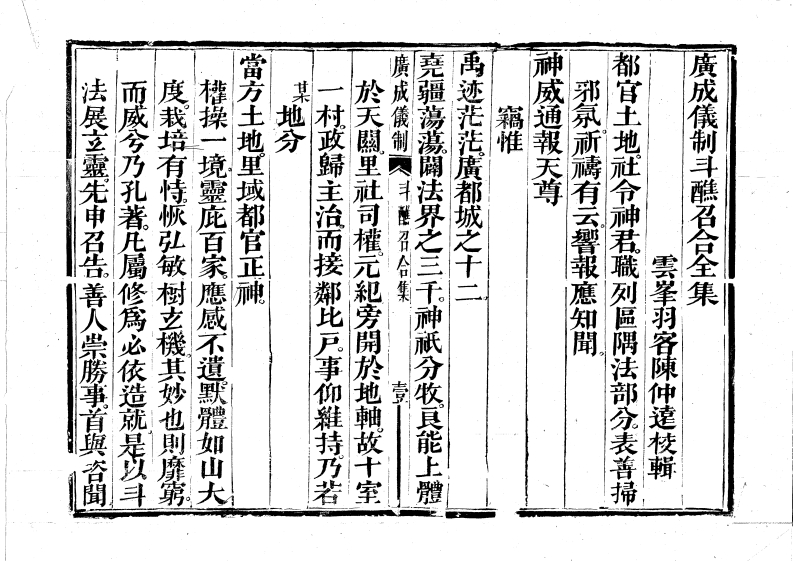 廣成儀制斗醮召合全集
雲峯羽客陳仲遠校輯
都官土地。社令神君。職列區隅法部分。表善掃
邪氛。祈禱有云。響報應知聞。
神威通報天尊
竊惟
禹迹茫茫。廣都城之十二
堯疆蕩蕩。闢法界之三千。神祇分牧。良能上體
廣成儀制 斗醮召合集 壹
於天闕。里社司權。元紀旁開於地軸。故十室
一村。政歸主治。而接鄰比戸。事仰維持。乃若
某地分
當方土地。里域都官正神。
權操一境。靈庇百家。應感不遺。默體如山大
度。栽培有恃。恢弘敏樹玄機。其妙也則靡窮。
而威兮乃孔著。凡屬修爲必依造就。是以斗
法展立靈。先申召告。善人崇勝事。首與咨聞